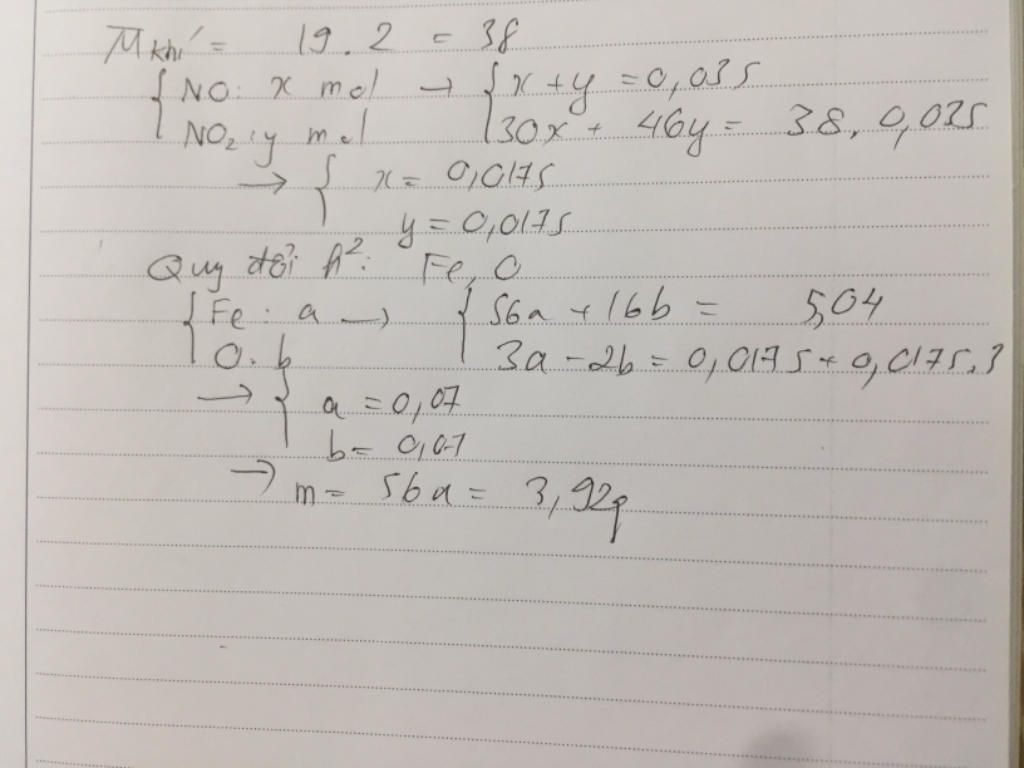 M̅ khí = 19.2 = 38
{ NO: x mol → { x + y = 0,035
{ NO₂: y mol { 30x + 46y = 38. 0,035
→ { x = 0,0175
{ y = 0,0175
Quy đổi h²: Fe, O
{ Fe: a → { 56a + 16b = 5,04
{ O: b { 3a - 2b = 0,0175 + 0,0175.3
→ { a = 0,07
{ b = 0,07
→ m = 56a = 3,92g